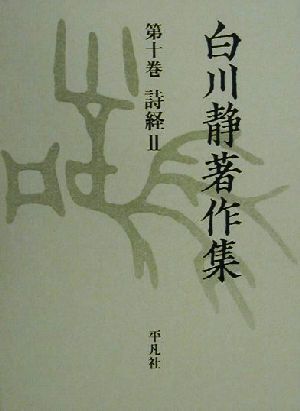 白川静著作集
第十巻 詩経Ⅱ
平凡社